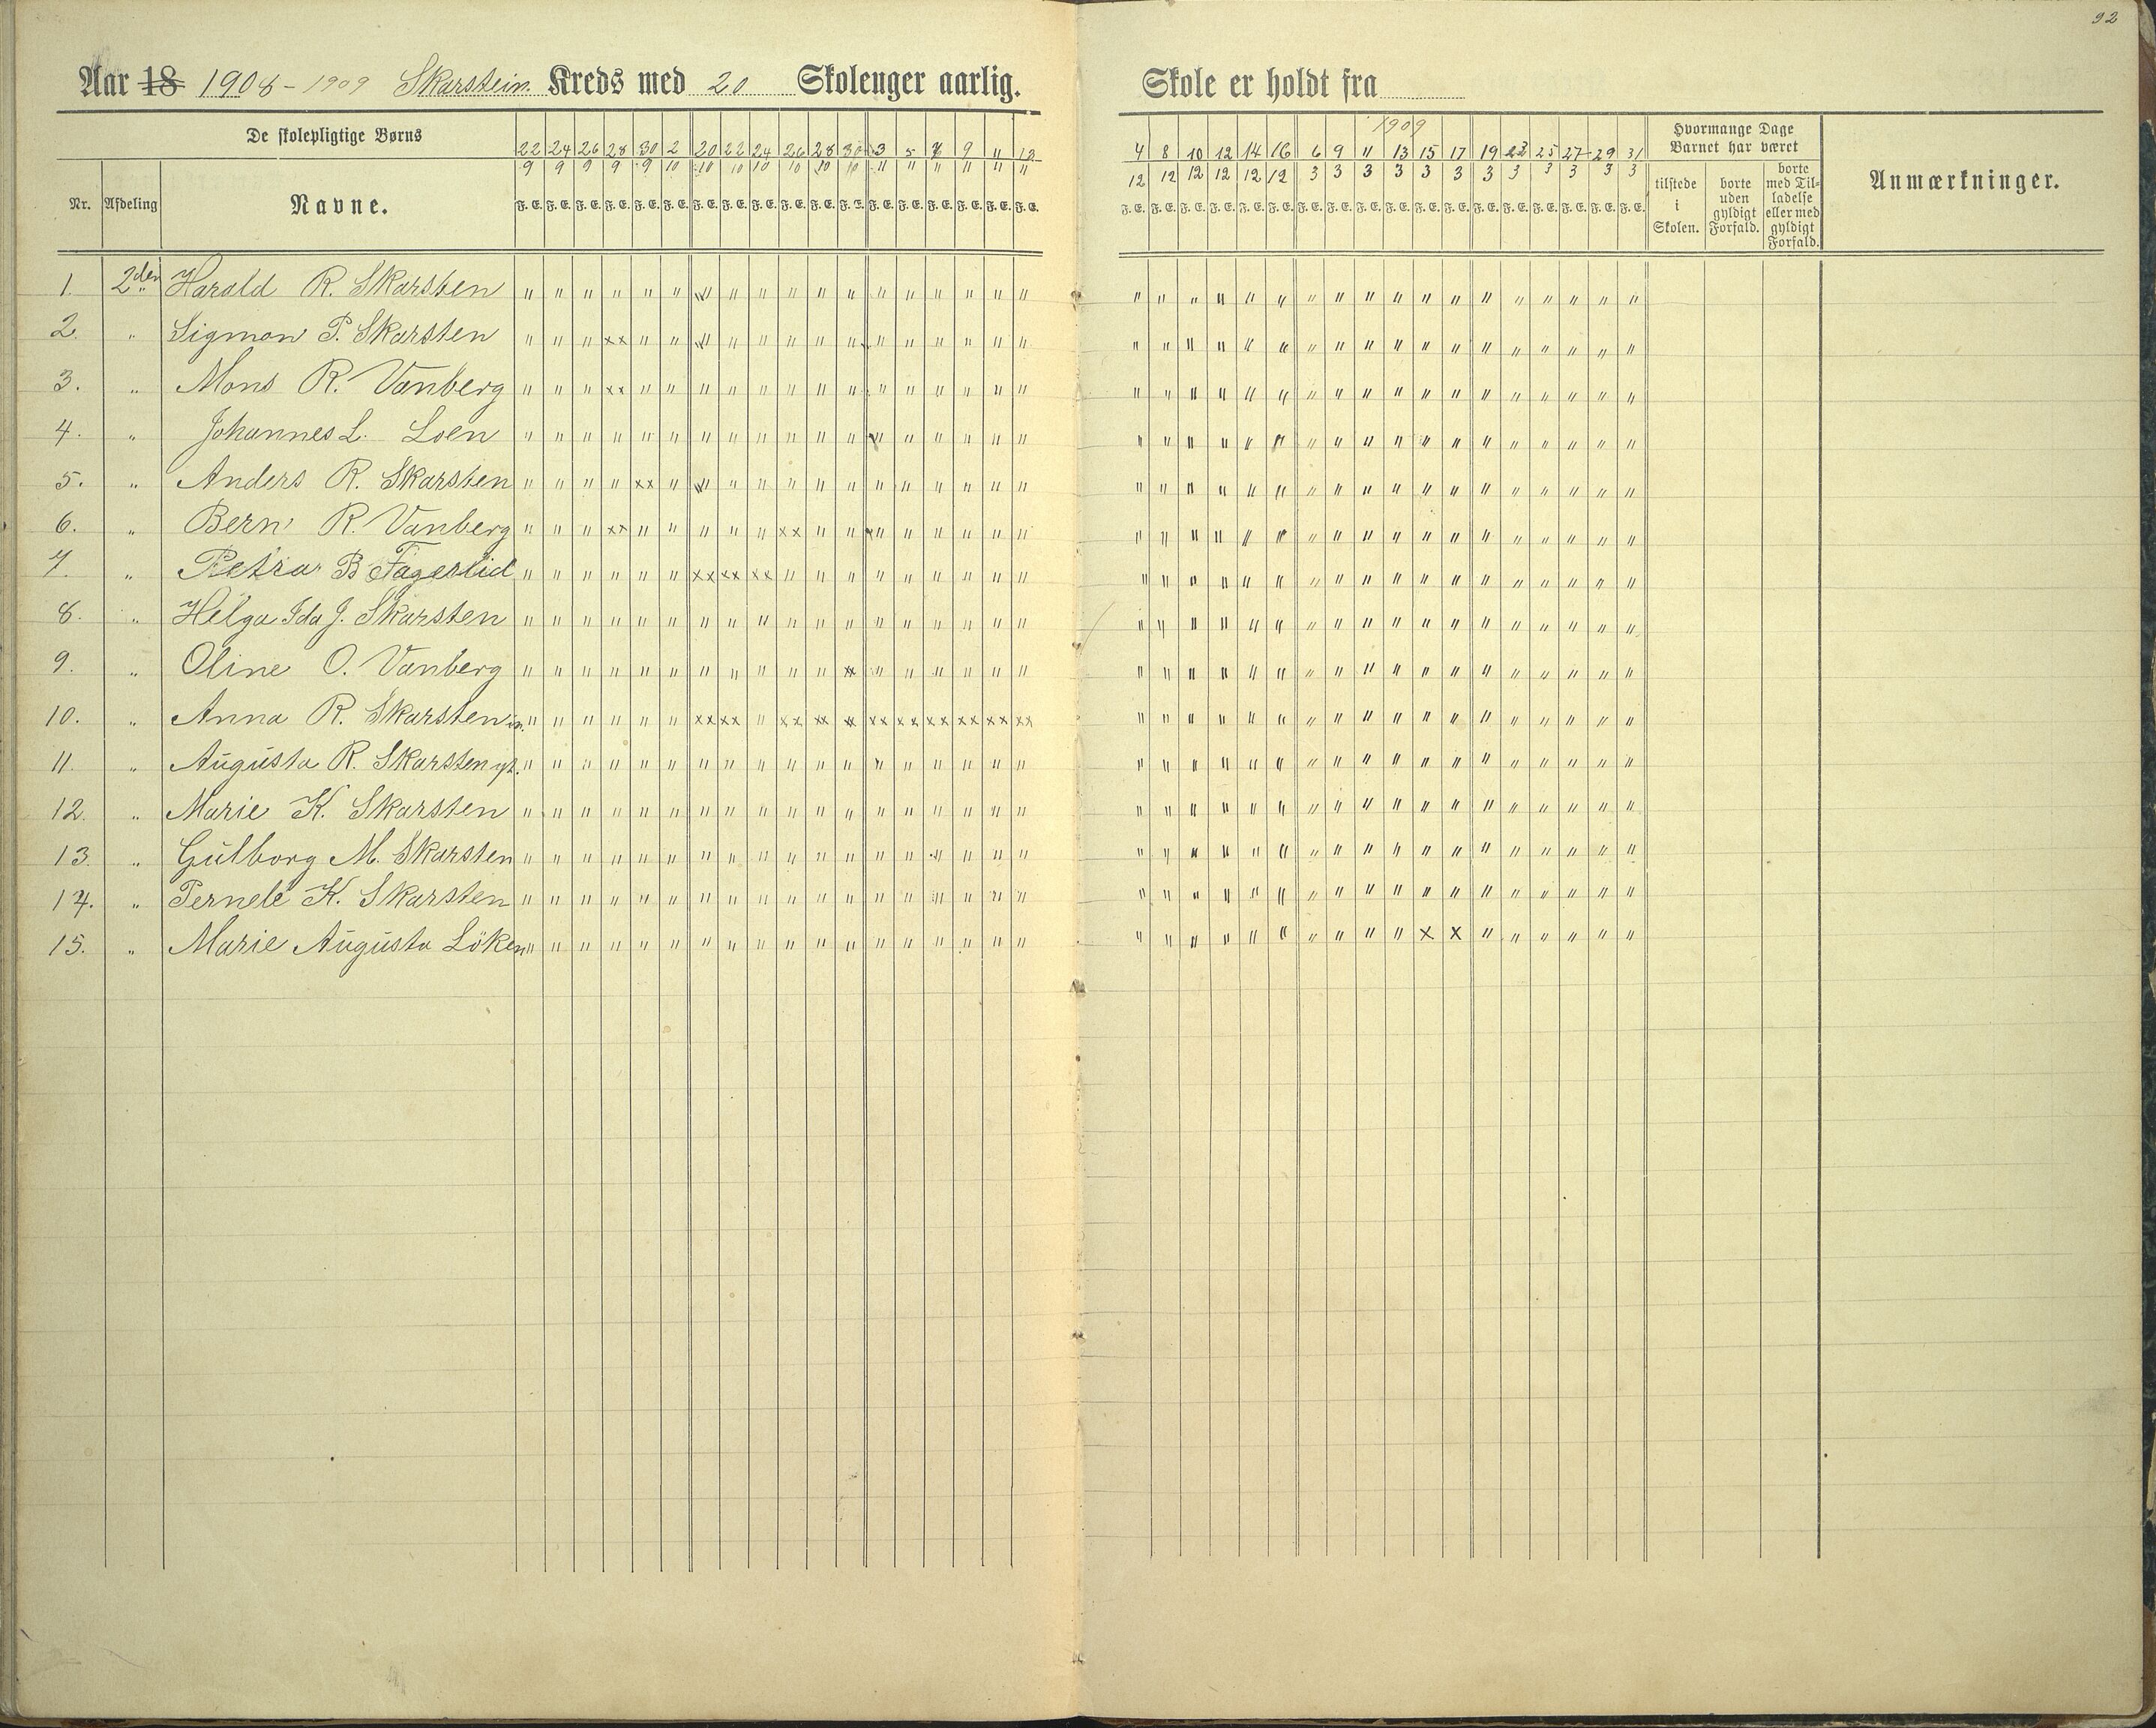 92
Aar 18 1908-1909 Skarstein Kreds med 20 Skoleuger aarlig. Skole er holdt fra
De skolepligtige Børns
22 24 26 28 30 2 20 22 24 26 28 30 3 5 7 9 11 12
9 9 9 9 9 10 10 10 10 10 10 10 11 11 11 11 11 11
1909
4 8 10 12 14 16 6 9 11 13 15 17 19 23 25 27 29 31
12 12 12 12 12 12 3 3 3 3 3 3 3 3 3 3 3 3
Hvormange Dage
Barnet har været
Nr. Afdeling Navne.
F. E. F. E. F. E. F. E. F. E. F. E. F. E. F. E. F. E. F. E. F. E. F. E. F. E. F. E. F. E. F. E. F. E. F. E.
F. E. F. E. F. E. F. E. F. E. F. E. F. E. F. E. F. E. F. E. F. E. F. E. F. E. F. E. F. E. F. E. F. E. F. E.
tilstede
i
Skolen.
borte
uden
gyldigt
Forfald.
borte
med Til-
ladelse
eller med
gyldigt
Forfald.
Anmærkninger.
1. 2den Harald R. Skarsten
2. " Sigmon P. Skarsten
3. " Mons R. Vanberg
4. " Johannes L. Loen
5. " Anders R. Skarsten
6. " Bern R. Vanberg
7. " Petra B Fageslid
8. " Helga Ida J. Skarsten
9. " Oline O. Vanberg
10. " Anna R. Skarsten
11. " Augusta R. Skarsten yt.
12. " Marie K. Skarsten
13. " Gulborg M. Skarsten
14. " Pernele K. Skarsten
15. " Marie Augusta Löken